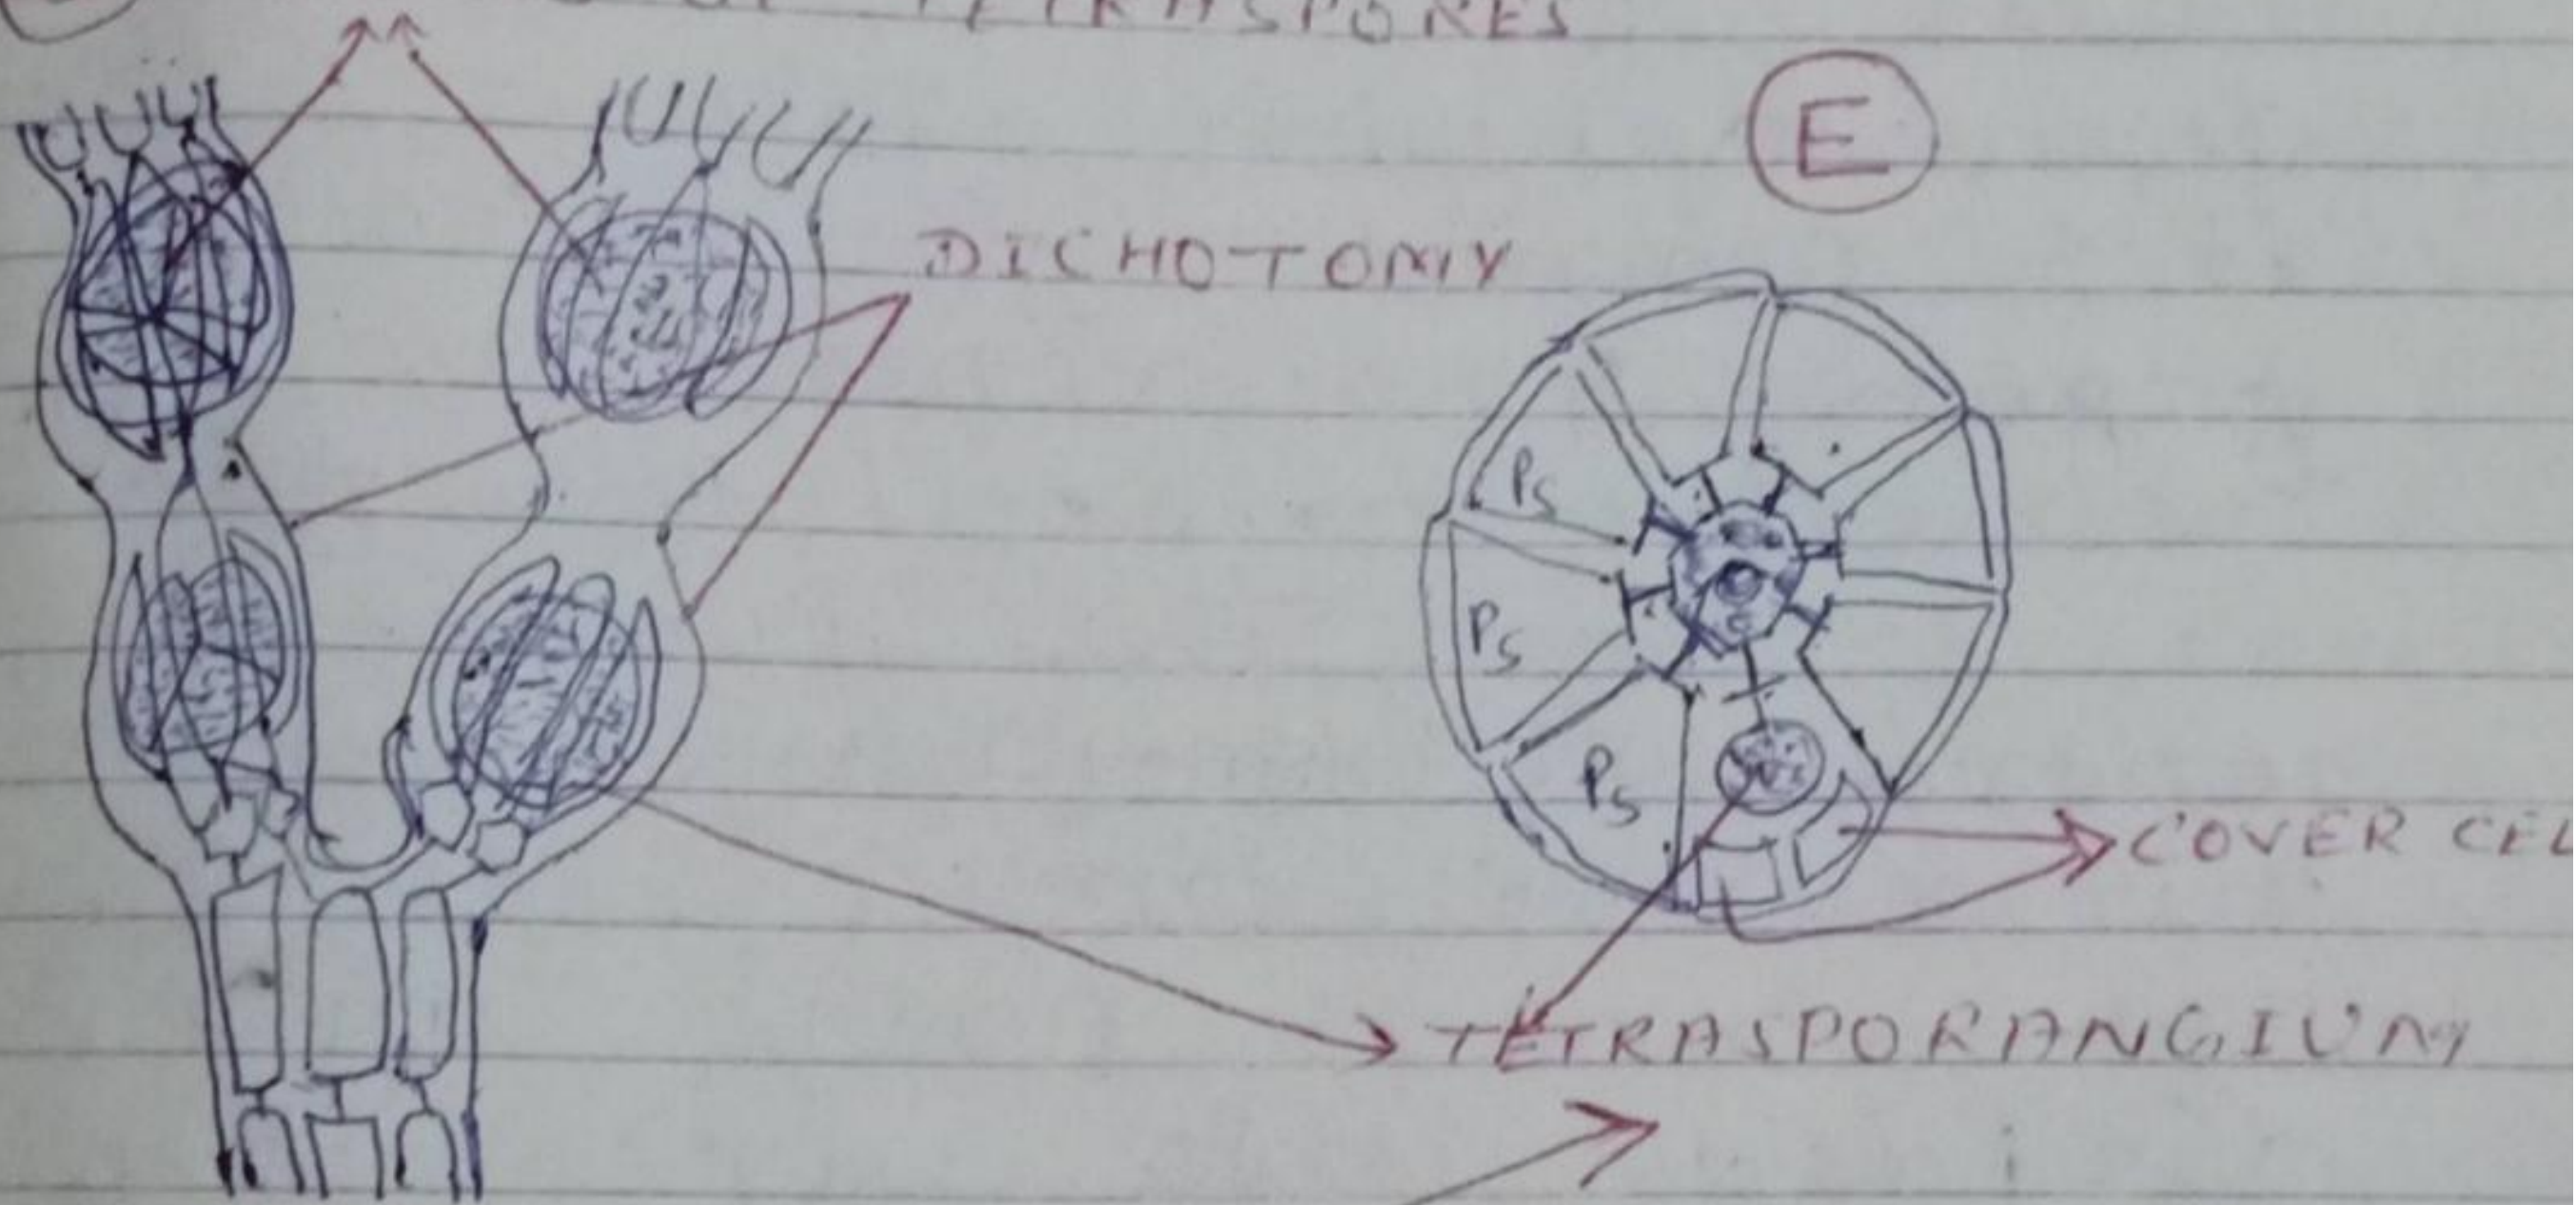 TETRASPORES
E
DICHOTOMY
Ps
Ps
Ps
COVER CEL
TETRASPORANGIUM